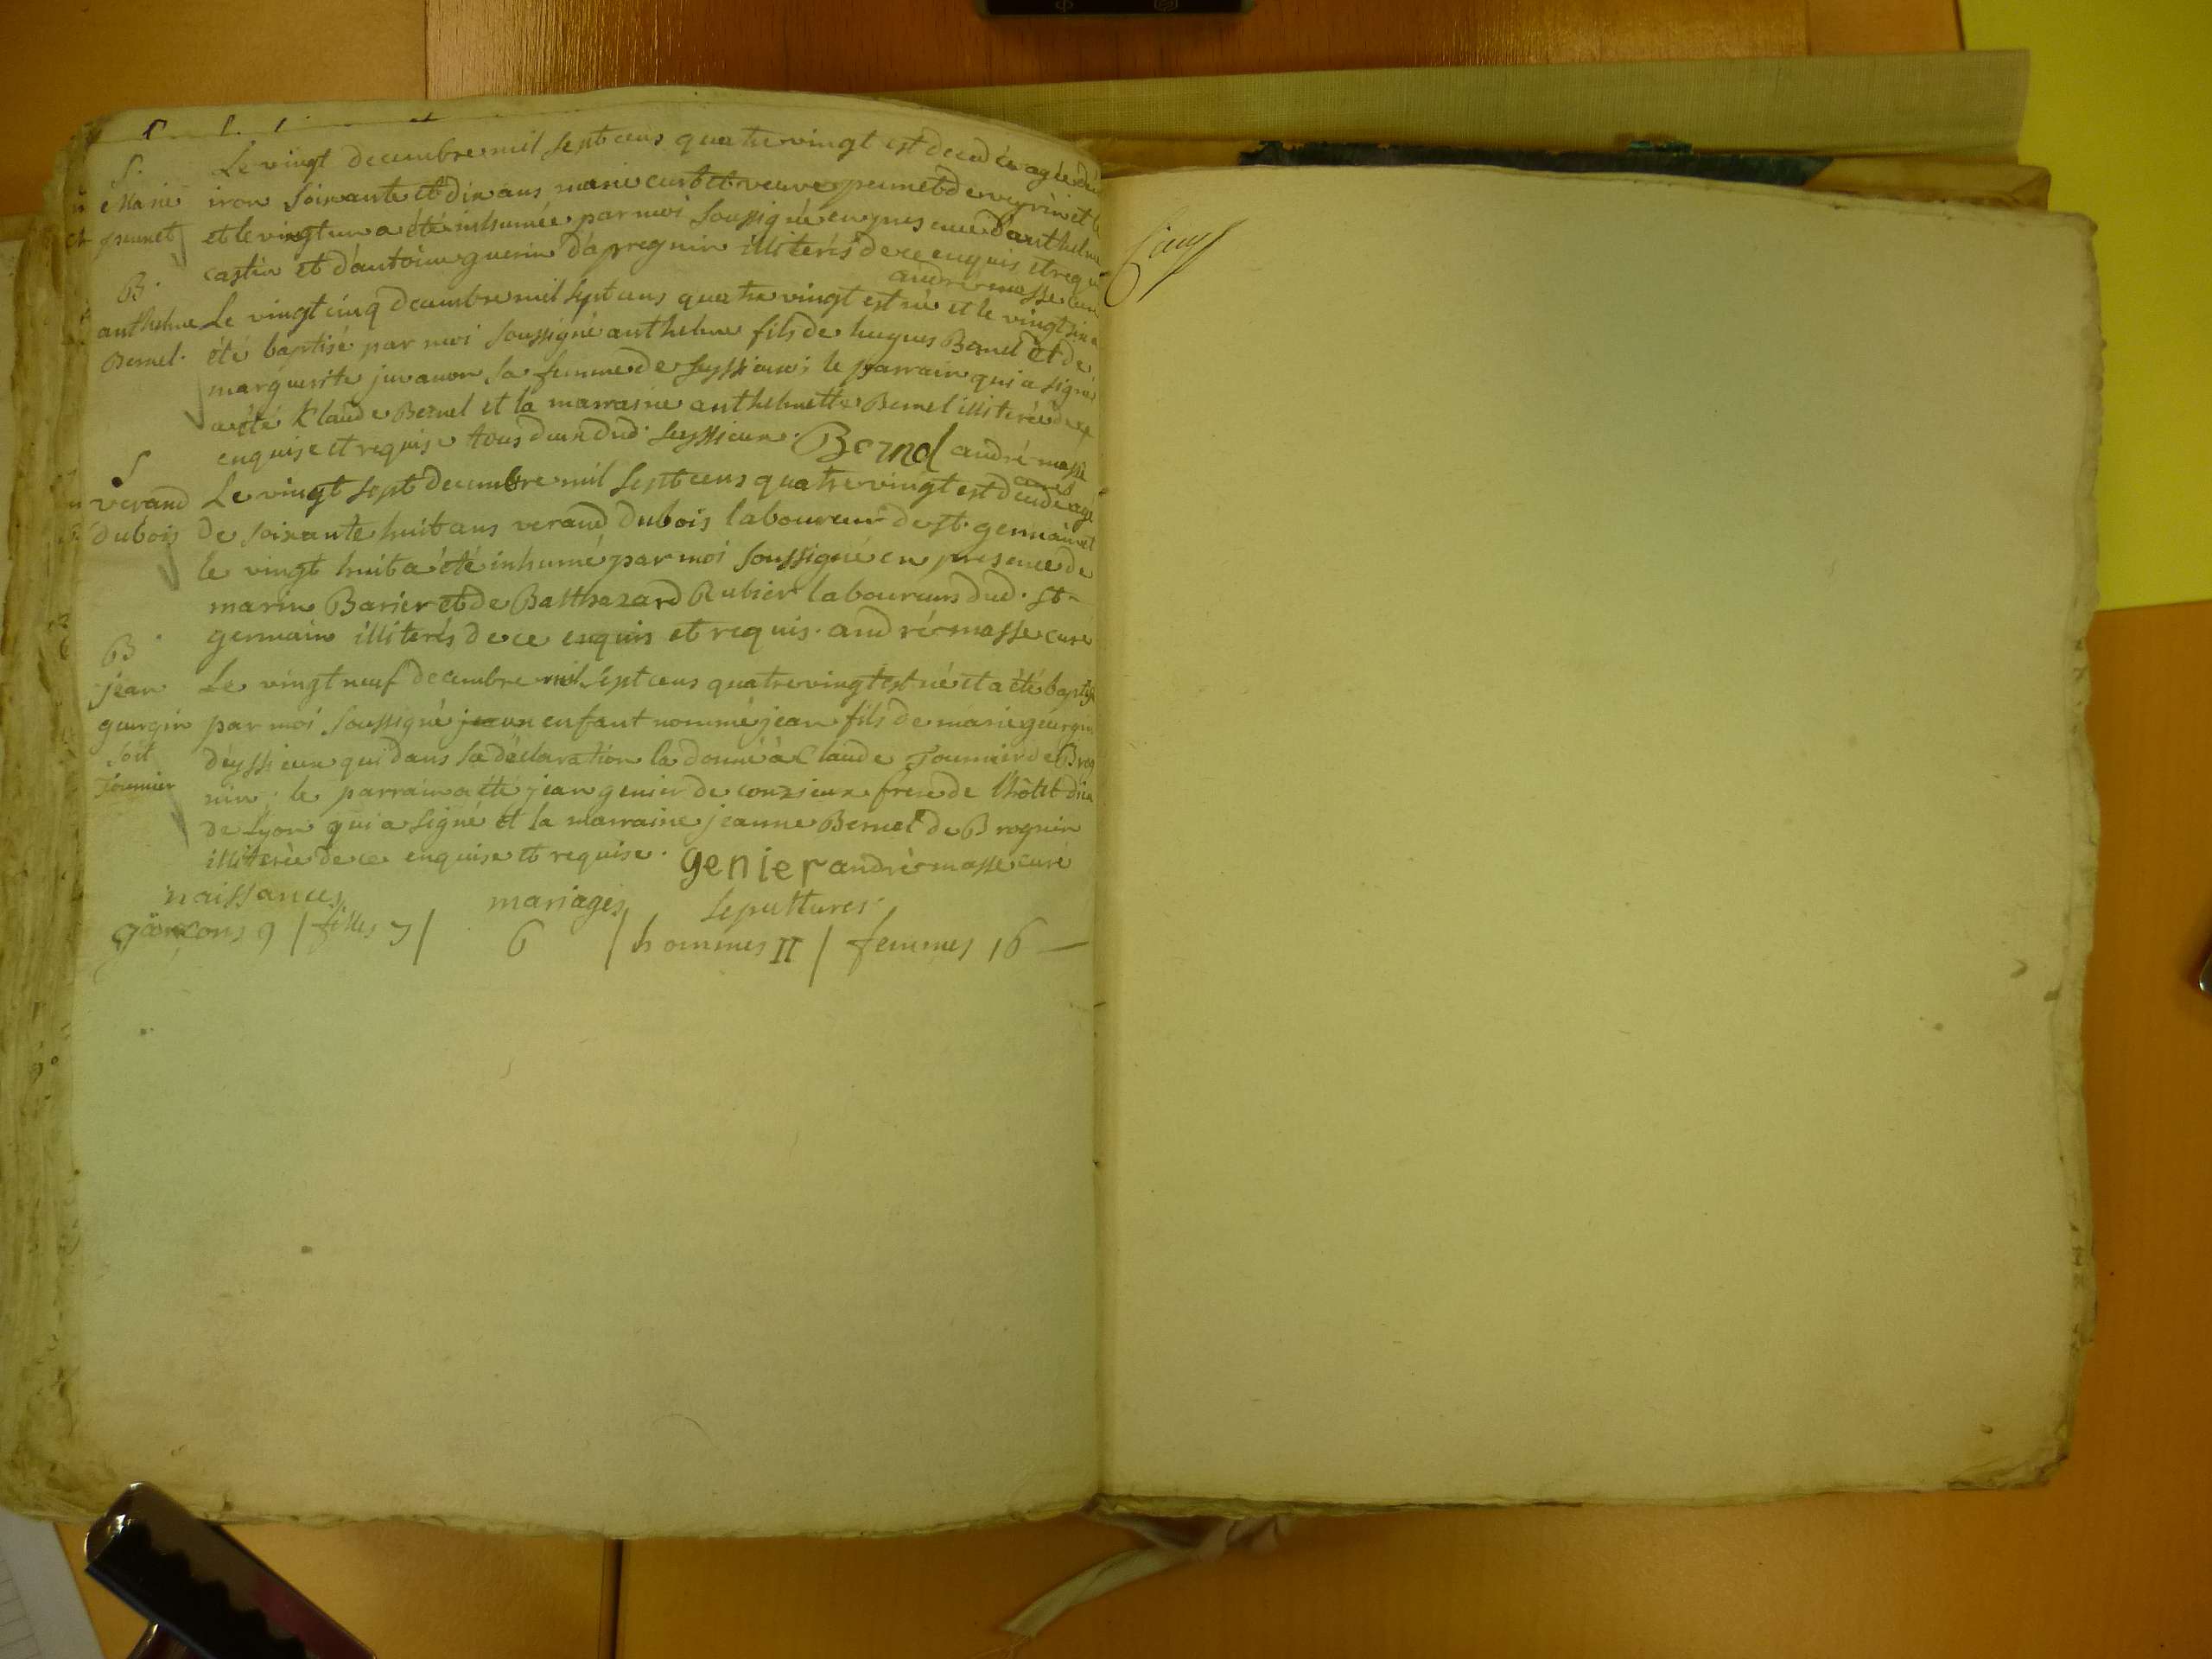 S. Le vingt decembre mil sept cens quatre vingt est decedée agée d'en
Marie iron soixante et dix ans marie curtet veuve peunet de veyrin et
peunet et le vingt un a été inhumée par moi soussigné en presence d'anthelme
castin et d'antoine guerin d'apregnin illiterés de ce enquis et requis
andré masse curé
B.
anthelme Le vingt cinq decembre mil sept cens quatre vingt est né et le vingt six a
Bernel. été baptisé par moi soussigné anthelme fils de hugues Bernel et de
marguerite juvanon sa femme de seyssieux; le parrain qui a signé
a été Claude Bernel et la marraine anthelmette Bernel illiterée de ce
enquise et requise tous deux dud. seyssieux. Bernel andré masse
curé
S
verand Le vingt sept decembre mil sept cens quatre vingt est decedé agé
dubois de soixante huit ans verand dubois laboureur de st. germain et
le vingt huit a été inhumé par moi soussigné en presence de
marin Barier et de Balthazard Rubier laboureurs dud. st
germain illiterés de ce enquis et requis. andré masse curé
B.
jean Le vingt neuf decembre mil sept cens quatre vingt est né et a été baptisé
geurgin par moi soussigné un enfant nommé jean fils de marie geurgin
soit deyssieux qui dans sa déclaration la donné à Claude Tournier de Brog
Tournier nin; le parrain a été jean genier de conzieux frere de l'hôtel dieu
de Lyon qui a signé et la marraine jeanne Bernel de Brognin
illiterée de ce enquise et requise. genier andré masse curé
naissances mariages sepultures
garçons 9 / filles 7 / 6 / hommes II / femmes 16